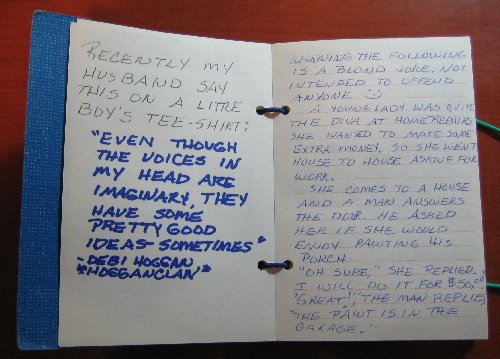 RECENTLY MY
HUSBAND SAY
THIS ON A LITTLE
BOY'S TEE-SHIRT:
"EVEN THOUGH
THE VOICES IN
MY HEAD ARE
IMAGINARY, THEY
HAVE SOME
PRETTY GOOD
IDEAS SOMETIMES"
-DEBI HOGGAN
*HOGGANCLAN*
WARNING THE FOLLOWING
IS A BLOND JOKE, NOT
INTENDED TO OFFEND
ANYONE
A YOUNG LADY WAS QUITE
THE DIVA AT HOME REPAIRS.
SHE WANTED TO MAKE SOME
EXTRA MONEY, SO SHE WENT
HOUSE TO HOUSE ASKING FOR
WORK.
SHE COMES TO A HOUSE
AND A MAN ANSWERS
THE DOOR. HE ASKED
HER IF SHE WOULD
ENJOY PAINTING HIS
PORCH.
"OH SURE," SHE REPLIED.
I WILL DO IT FOR $50.00
"GREAT!", THE MAN REPLIES,
"THE PAINT IS IN THE
GARAGE."